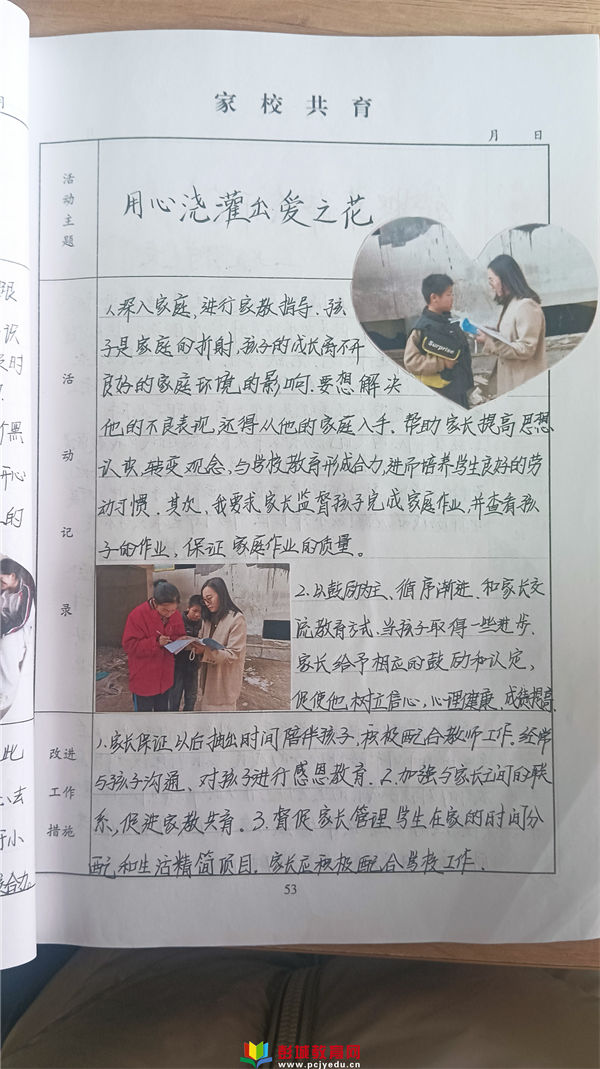 家校共育
月 日
活动主题
用心浇灌出爱之花
活动记录
1、深入家庭,进行家教指导.孩
子是家庭的折射,孩子的成长离不开
良好的家庭环境的影响.要想解决
他的不良表现,还得从他的家庭入手.帮助家长提高思想
认识,转变观念,与学校教育形成合力,进而培养学生良好的劳
动习惯.其次,我要求家长监督孩子完成家庭作业,并查看孩
子的作业,保证家庭作业的质量。
2.以鼓励为主、循序渐进.和家长交
流教育方式.当孩子取得一些进步.
家长给予相应的鼓励和认定,
促使他树立信心,心理健康,成绩提高
改进工作措施
1.家长保证以后抽出时间陪伴孩子,积极配合教师工作。经常
与孩子沟通、对孩子进行感恩教育.2.加强与家长之间的联
系,促进家教共育。3.督促家长管理学生在家的时间分
配和生活精简项目.家长应积极配合学校工作.
53
Surprise
眼
识
时
黑
开心
的
此
去
小
合力
月
彭城教育网
www.pcjyedu.cn